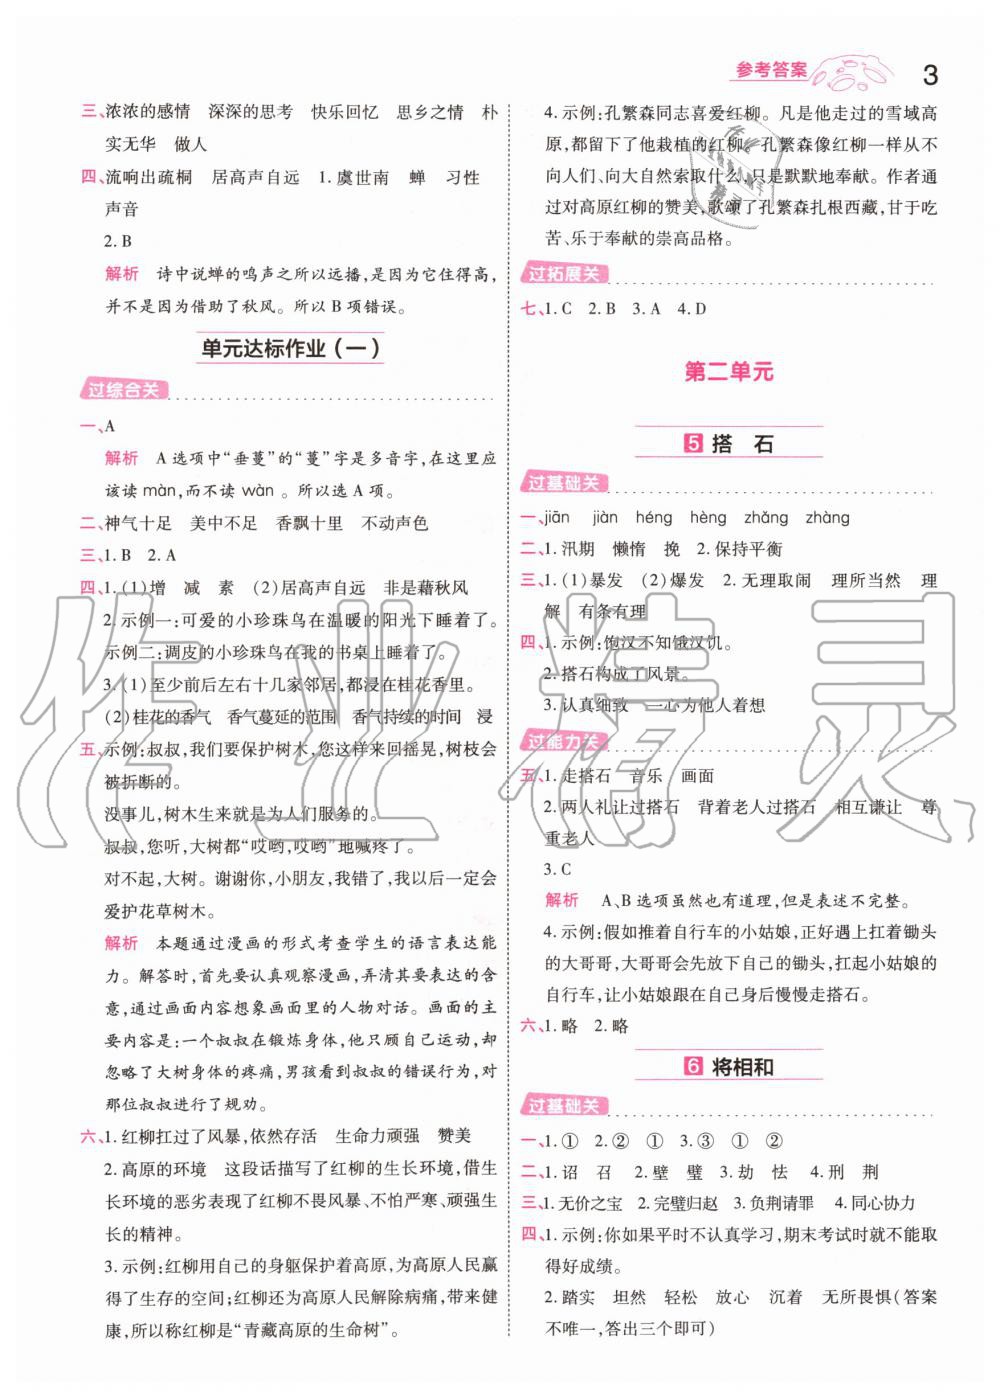 参考答案 3
三、浓浓的感情 深深的思考 快乐回忆 思乡之情 朴
实无华 做人
四、流响出疏桐 居高声自远 1. 虞世南 蝉 习性
声音
2. B
解析 诗中说蝉的鸣声之所以远播,是因为它住得高,
并不是因为借助了秋风。所以 B 项错误。
单元达标作业(一)
过综合关
一、A
解析 A 选项中“垂蔓”的“蔓”字是多音字,在这里应
该读 màn,而不读 wàn 。所以选 A 项。
二、神气十足 美中不足 香飘十里 不动声色
三、1. B 2. A
四、1. (1)增 减 素 (2)居高声自远 非是藉秋风
2. 示例一:可爱的小珍珠鸟在温暖的阳光下睡着了。
示例二:调皮的小珍珠鸟在我的书桌上睡着了。
3. (1)至少前后左右十几家邻居,都浸在桂花香里。
(2)桂花的香气 香气蔓延的范围 香气持续的时间 浸
五、示例:叔叔,我们要保护树木,您这样来回摇晃,树枝会
被折断的。
没事儿,树木生来就是为人们服务的。
叔叔,您听,大树都“哎哟,哎哟”地喊疼了。
对不起,大树。谢谢你,小朋友,我错了,我以后一定会
爱护花草树木。
解析 本题通过漫画的形式考查学生的语言表达能
力。解答时,首先要认真观察漫画,弄清其要表达的含
意,通过画面内容想象画面里的人物对话。画面的主
要内容是:一个叔叔在锻炼身体,他只顾自己运动,却
忽略了大树身体的疼痛,男孩看到叔叔的错误行为,对
那位叔叔进行了规劝。
六、1. 红柳扛过了风暴,依然存活 生命力顽强 赞美
2. 高原的环境 这段话描写了红柳的生长环境,借生
长环境的恶劣表现了红柳不畏风暴、不怕严寒、顽强生
长的精神。
3. 示例:红柳用自己的身躯保护着高原,为高原人民赢
得了生存的空间;红柳还为高原人民解除病痛,带来健
康,所以称红柳是“青藏高原的生命树”。
4. 示例:孔繁森同志喜爱红柳。凡是他走过的雪域高
原,都留下了他栽植的红柳。孔繁森像红柳一样从不
向人们、向大自然索取什么,只是默默地奉献。作者通
过对高原红柳的赞美,歌颂了孔繁森扎根西藏,甘于吃
苦、乐于奉献的崇高品格。
过拓展关
七、1. C 2. B 3. A 4. D
第二单元
5 搭 石
过基础关
一、jiān jiàn héng hèng zhǎng zhàng
二、1. 汛期 懒惰 挽 2. 保持平衡
三、1. (1)暴发 (2)爆发 2. 无理取闹 理所当然 理
解 有条有理
四、1. 示例:饱汉不知饿汉饥。
2. 搭石构成了风景。
3. 认真细致 一心为他人着想
过能力关
五、1. 走搭石 音乐 画面
2. 两人礼让过搭石 背着老人过搭石 相互谦让 尊
重老人
3. C
解析 A、B 选项虽然也有道理,但是表述不完整。
4. 示例:假如推着自行车的小姑娘,正好遇上扛着锄头
的大哥哥,大哥哥会先放下自己的锄头,扛起小姑娘的
自行车,让小姑娘跟在自己身后慢慢走搭石。
六、1. 略 2. 略
6 将相和
过基础关
一、1. ① 2. ② ① 3. ③ ① ②
二、1. 诏 召 2. 壁 璧 3. 劫 怯 4. 刑 荆
三、1. 无价之宝 2. 完璧归赵 3. 负荆请罪 4. 同心协力
四、1. 示例:你如果平时不认真学习,期末考试时就不能取
得好成绩。
2. 踏实 坦然 轻松 放心 沉着 无所畏惧(答案
不唯一,答出三个即可)
作业精灵